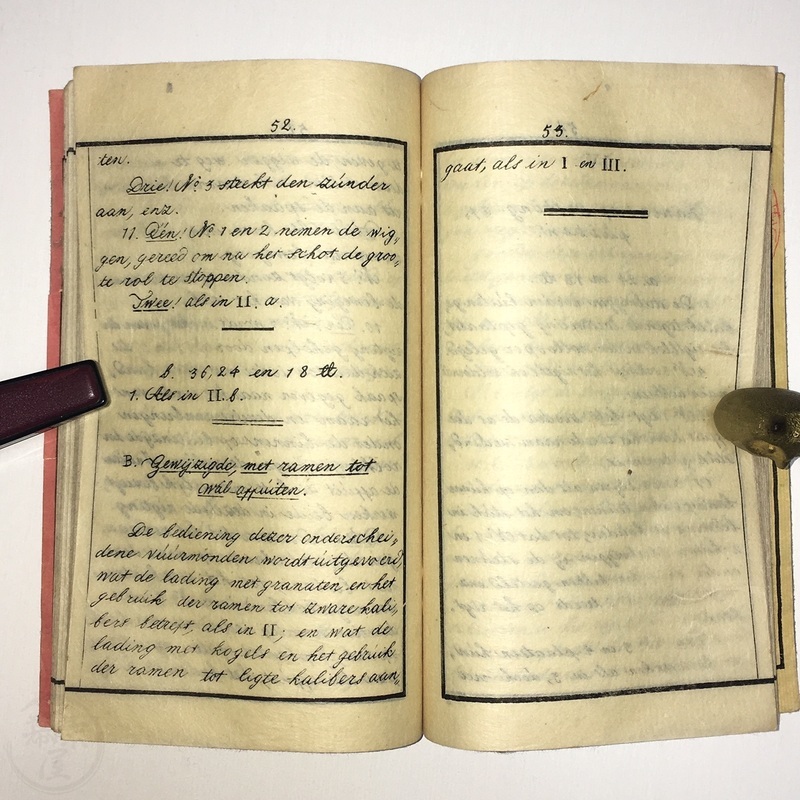 52.
ten.
Drie! No. 3 steekt den zúnder
aan, enz.
11. Eén! No. 1 en 2 nemen de wig„
gen, gereed om na het schot de groo„
te rol te stoppen.
Twee! als in II. a.
b. 36, 24 en 18 ℔.
1. Als in II. b.
B. Gewijzigde, met ramen tot
wal-affuiten.
De bediening dezer onderschei„
dene vúúrmonden wordt úitgevoerd,
wat de lading met granaten en het
gebruik der ramen tot zware kali„
bers betreft, als in II; en wat de
lading met kogels en het gebrúik
der ramen tot ligte kalibers aan„
53.
gaat, als in I en III.